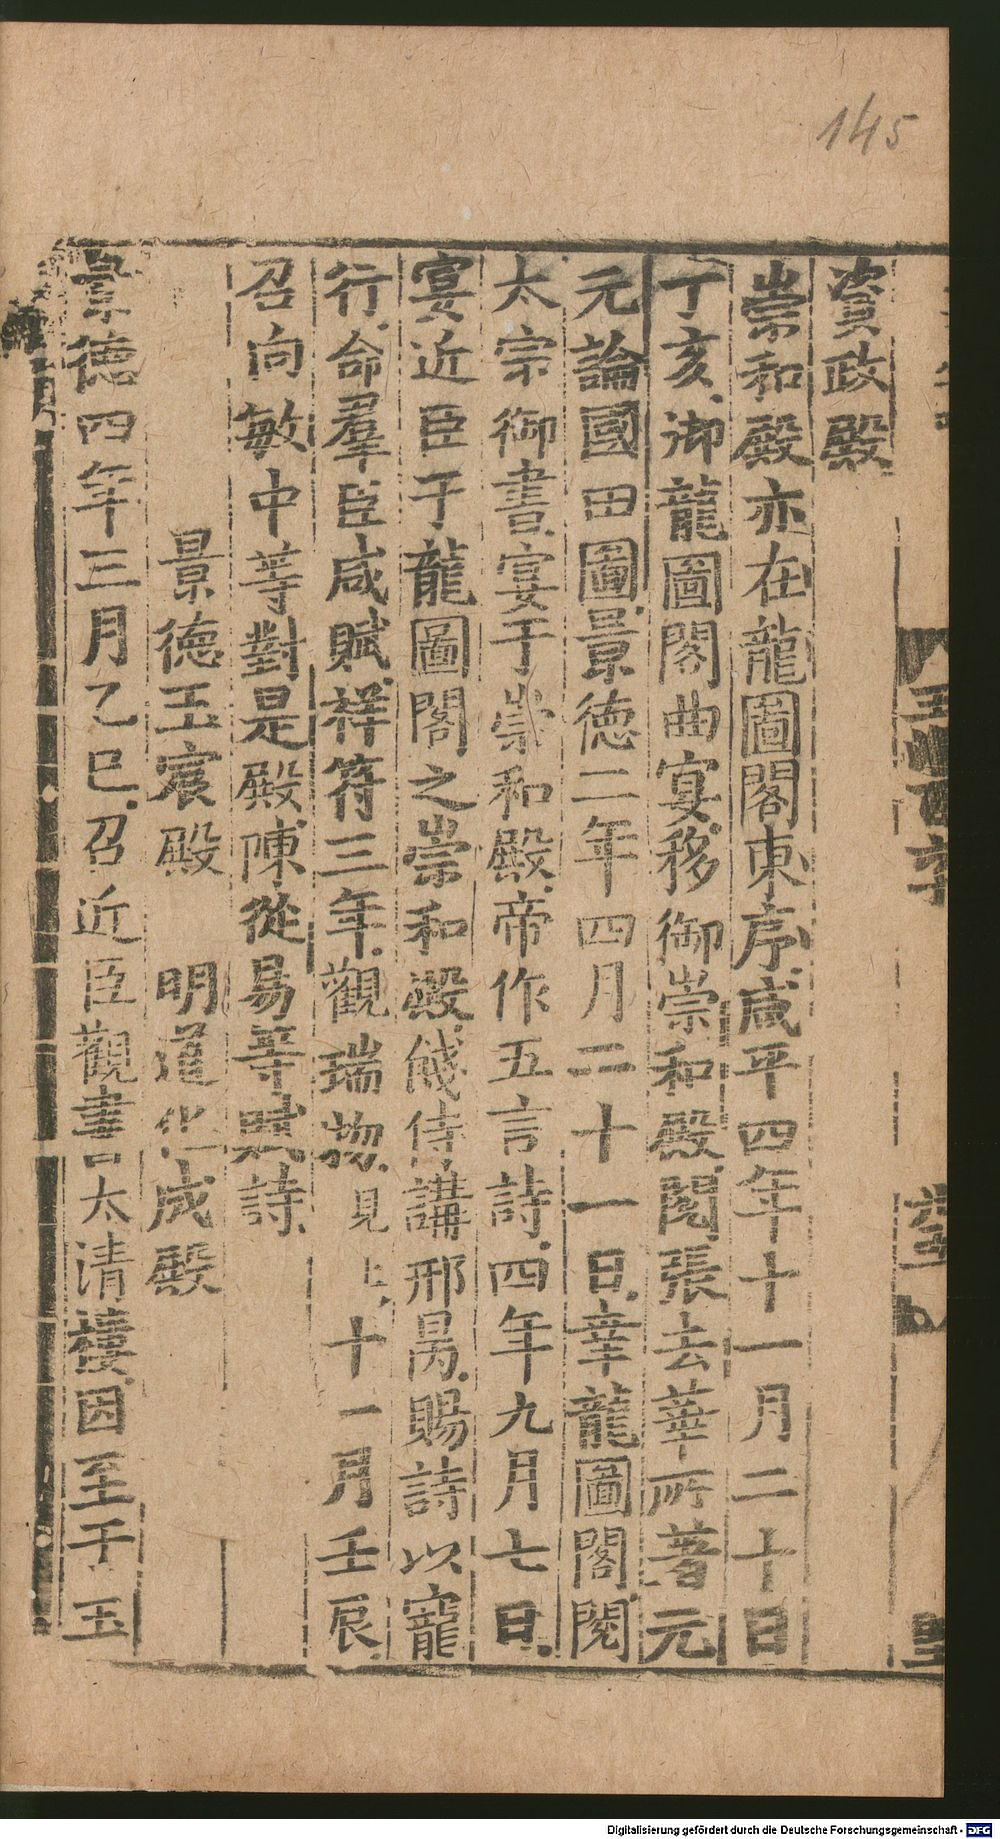 145
資政殿
崇和殿亦在龍圖閣東序咸平四年十一月二十日
丁亥御龍圖閣曲宴移御崇和殿閱張去華所著元
元論國田圖景德二年四月二十一日幸龍圖閣閱
太宗御書宴于崇和殿帝作五言詩四年九月七日
宴近臣于龍圖閣之崇和殿餞侍講邢昺賜詩以寵
行命羣臣咸賦祥符三年觀瑞物見上十一月壬辰
召向敏中等對是殿陳從易等賦詩
景德玉宸殿 明道化成殿
景德四年三月乙巳召近臣觀書太清樓因至于玉
Digitalisierung gefördert durch die Deutsche Forschungsgemeinschaft - DFG